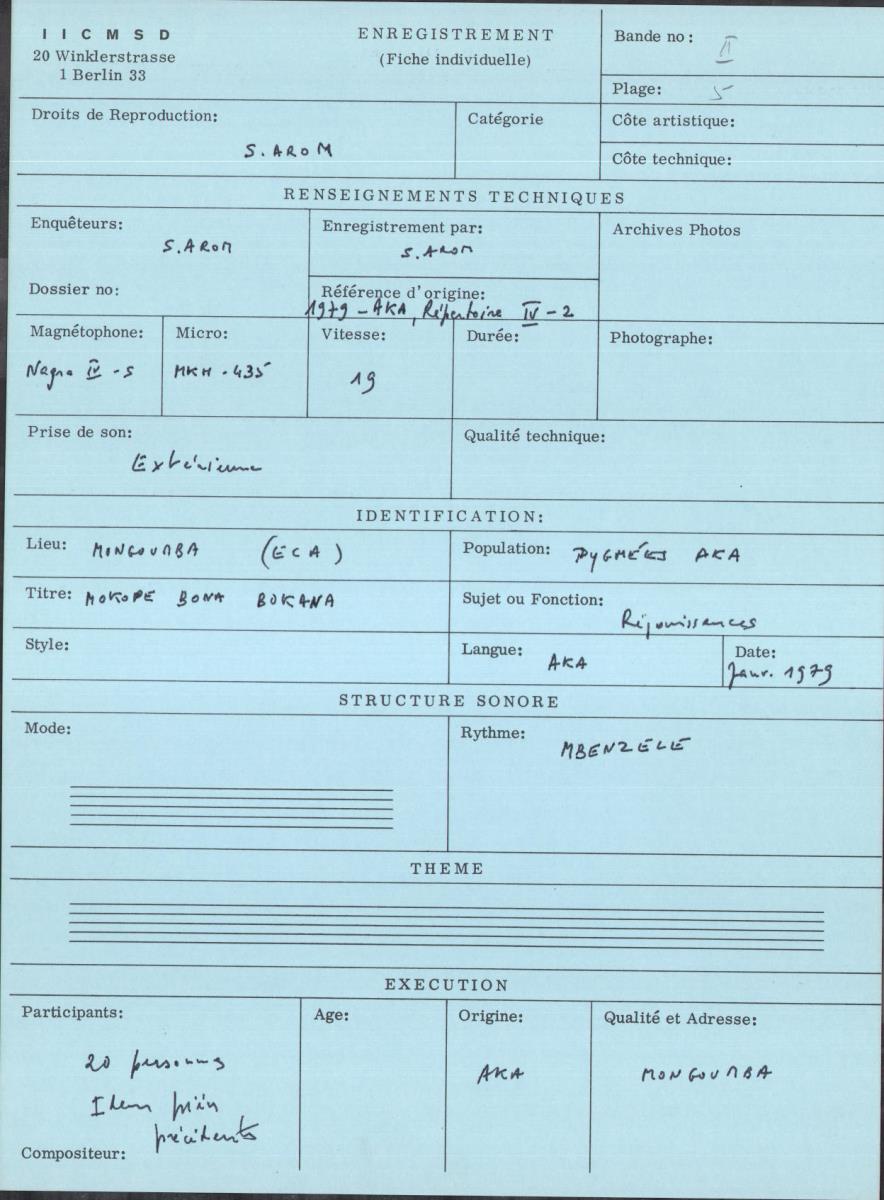 I I C M S D
20 Winklerstrasse
1 Berlin 33
ENREGISTREMENT
(Fiche individuelle)
Bande no: II
Plage: 5
Droits de Reproduction:
S. AROM
Catégorie
Côte artistique:
Côte technique:
RENSEIGNEMENTS TECHNIQUES
Enquêteurs:
S. AROM
Dossier no:
Enregistrement par:
S. AROM
Référence d'origine:
1979 - AKA, Répertoire IV - 2
Archives Photos
Magnétophone:
Nagra IV - S
Micro:
MKH - 435
Vitesse:
19
Durée:
Photographe:
Prise de son:
Extérieure
Qualité technique:
IDENTIFICATION:
Lieu: MONGOUMBA (ECA)
Population: PYGMÉES AKA
Titre: MOKOPE BONA BOKANA
Sujet ou Fonction:
Réjouissances
Style:
Langue: AKA
Date:
Janv. 1979
STRUCTURE SONORE
Mode:
Rythme:
MBENZELE
THEME
EXECUTION
Participants:
20 personnes
Idem
précédents
Compositeur:
Age:
Origine:
AKA
Qualité et Adresse:
MONGOUMBA